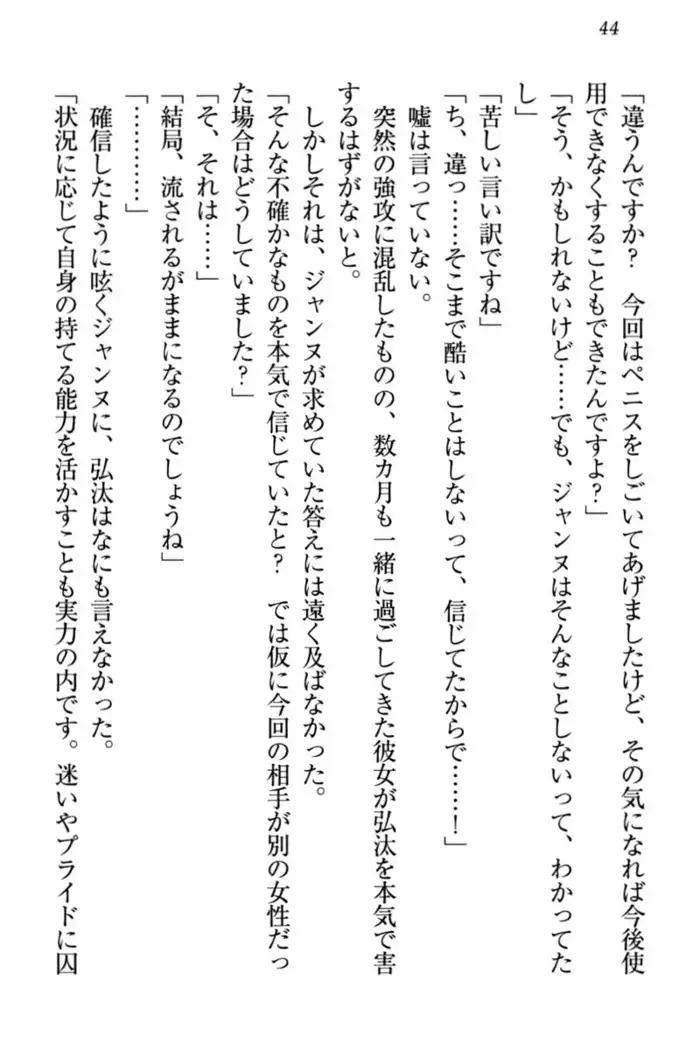 44
「違うんですか?　今回はペニスをしごいてあげましたけど、その気になれば今後使
用できなくすることもできたんですよ?」
「そう、かもしれないけど……でも、ジャンヌはそんなことしないって、わかってた
し」
「苦しい言い訳ですね」
「ち、違っ……そこまで酷いことはしないって、信じてたからで……!」
嘘は言っていない。
突然の強攻に混乱したものの、数カ月も一緒に過ごしてきた彼女が弘汰を本気で害
するはずがないと。
しかしそれは、ジャンヌが求めていた答えには遠く及ばなかった。
「そんな不確かなものを本気で信じていたと?　では仮に今回の相手が別の女性だっ
た場合はどうしていました?」
「そ、それは……」
「結局、流されるがままになるのでしょうね」
「…………」
確信したように呟くジャンヌに、弘汰はなにも言えなかった。
「状況に応じて自身の持てる能力を活かすことも実力の内です。迷いやプライドに囚